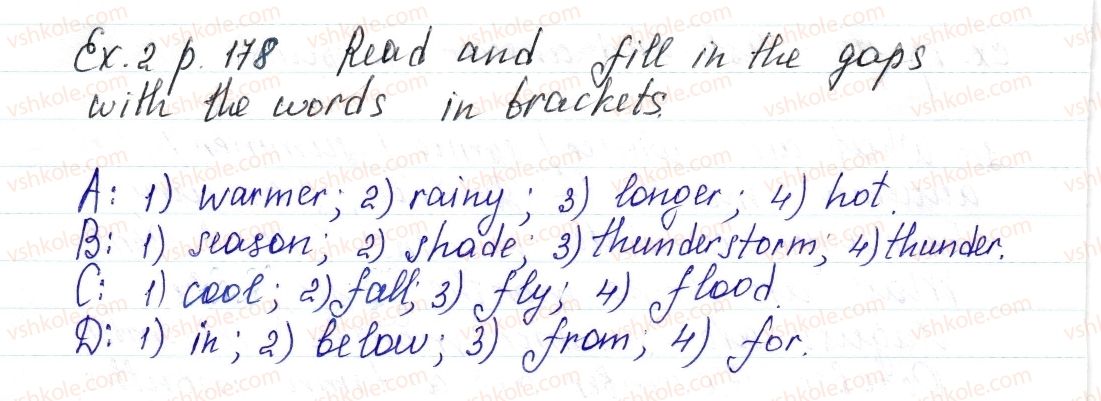 Ex. 2 p. 178 Read and fill in the gaps
with the words in brackets.
A: 1) warmer; 2) rainy; 3) longer; 4) hot.
B: 1) season; 2) shade; 3) thunderstorm; 4) thunder.
C: 1) cool; 2) fall; 3) fly; 4) flood.
D: 1) in; 2) below; 3) from; 4) for.